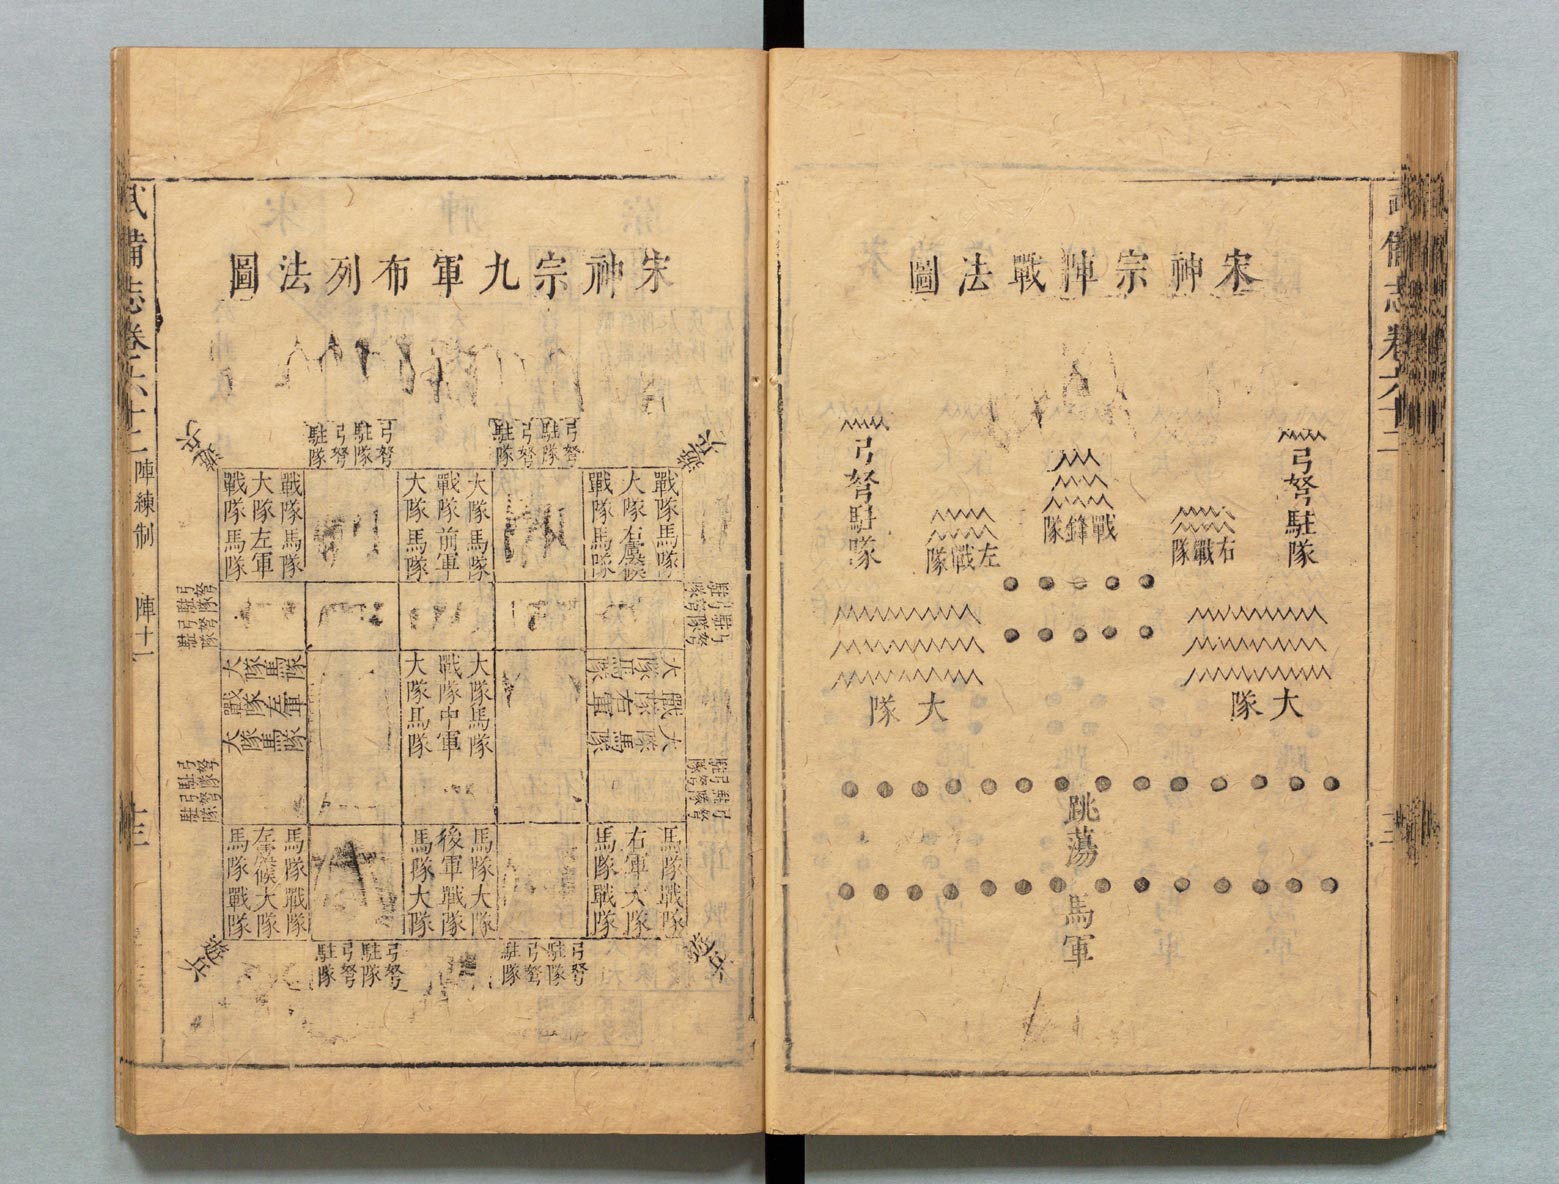 宋神宗陣戰法圖
弓弩駐隊
右戰隊
戰鋒隊
左戰隊
弓弩駐隊
大隊
大隊
跳蕩馬軍
宋神宗九軍布列法圖
遊兵
弓弩駐隊
弓弩駐隊
弓弩駐隊
弓弩駐隊
遊兵
戰隊馬隊
大隊右虞候
戰隊馬隊
大隊馬隊
戰隊前軍
大隊馬隊
戰隊馬隊
大隊左軍
戰隊馬隊
弓弩駐隊
弓弩駐隊
弓弩駐隊
弓弩駐隊
大隊馬隊
戰隊右軍
大隊馬隊
大隊馬隊
戰隊中軍
大隊馬隊
大隊馬隊
戰隊左軍
大隊馬隊
弓弩駐隊
弓弩駐隊
弓弩駐隊
弓弩駐隊
馬隊戰隊
右軍大隊
馬隊戰隊
馬隊大隊
後軍戰隊
馬隊大隊
馬隊戰隊
左虞候大隊
馬隊戰隊
遊兵
弓弩駐隊
弓弩駐隊
弓弩駐隊
弓弩駐隊
遊兵
武備志卷六十二
陣練制
陣十一
十三